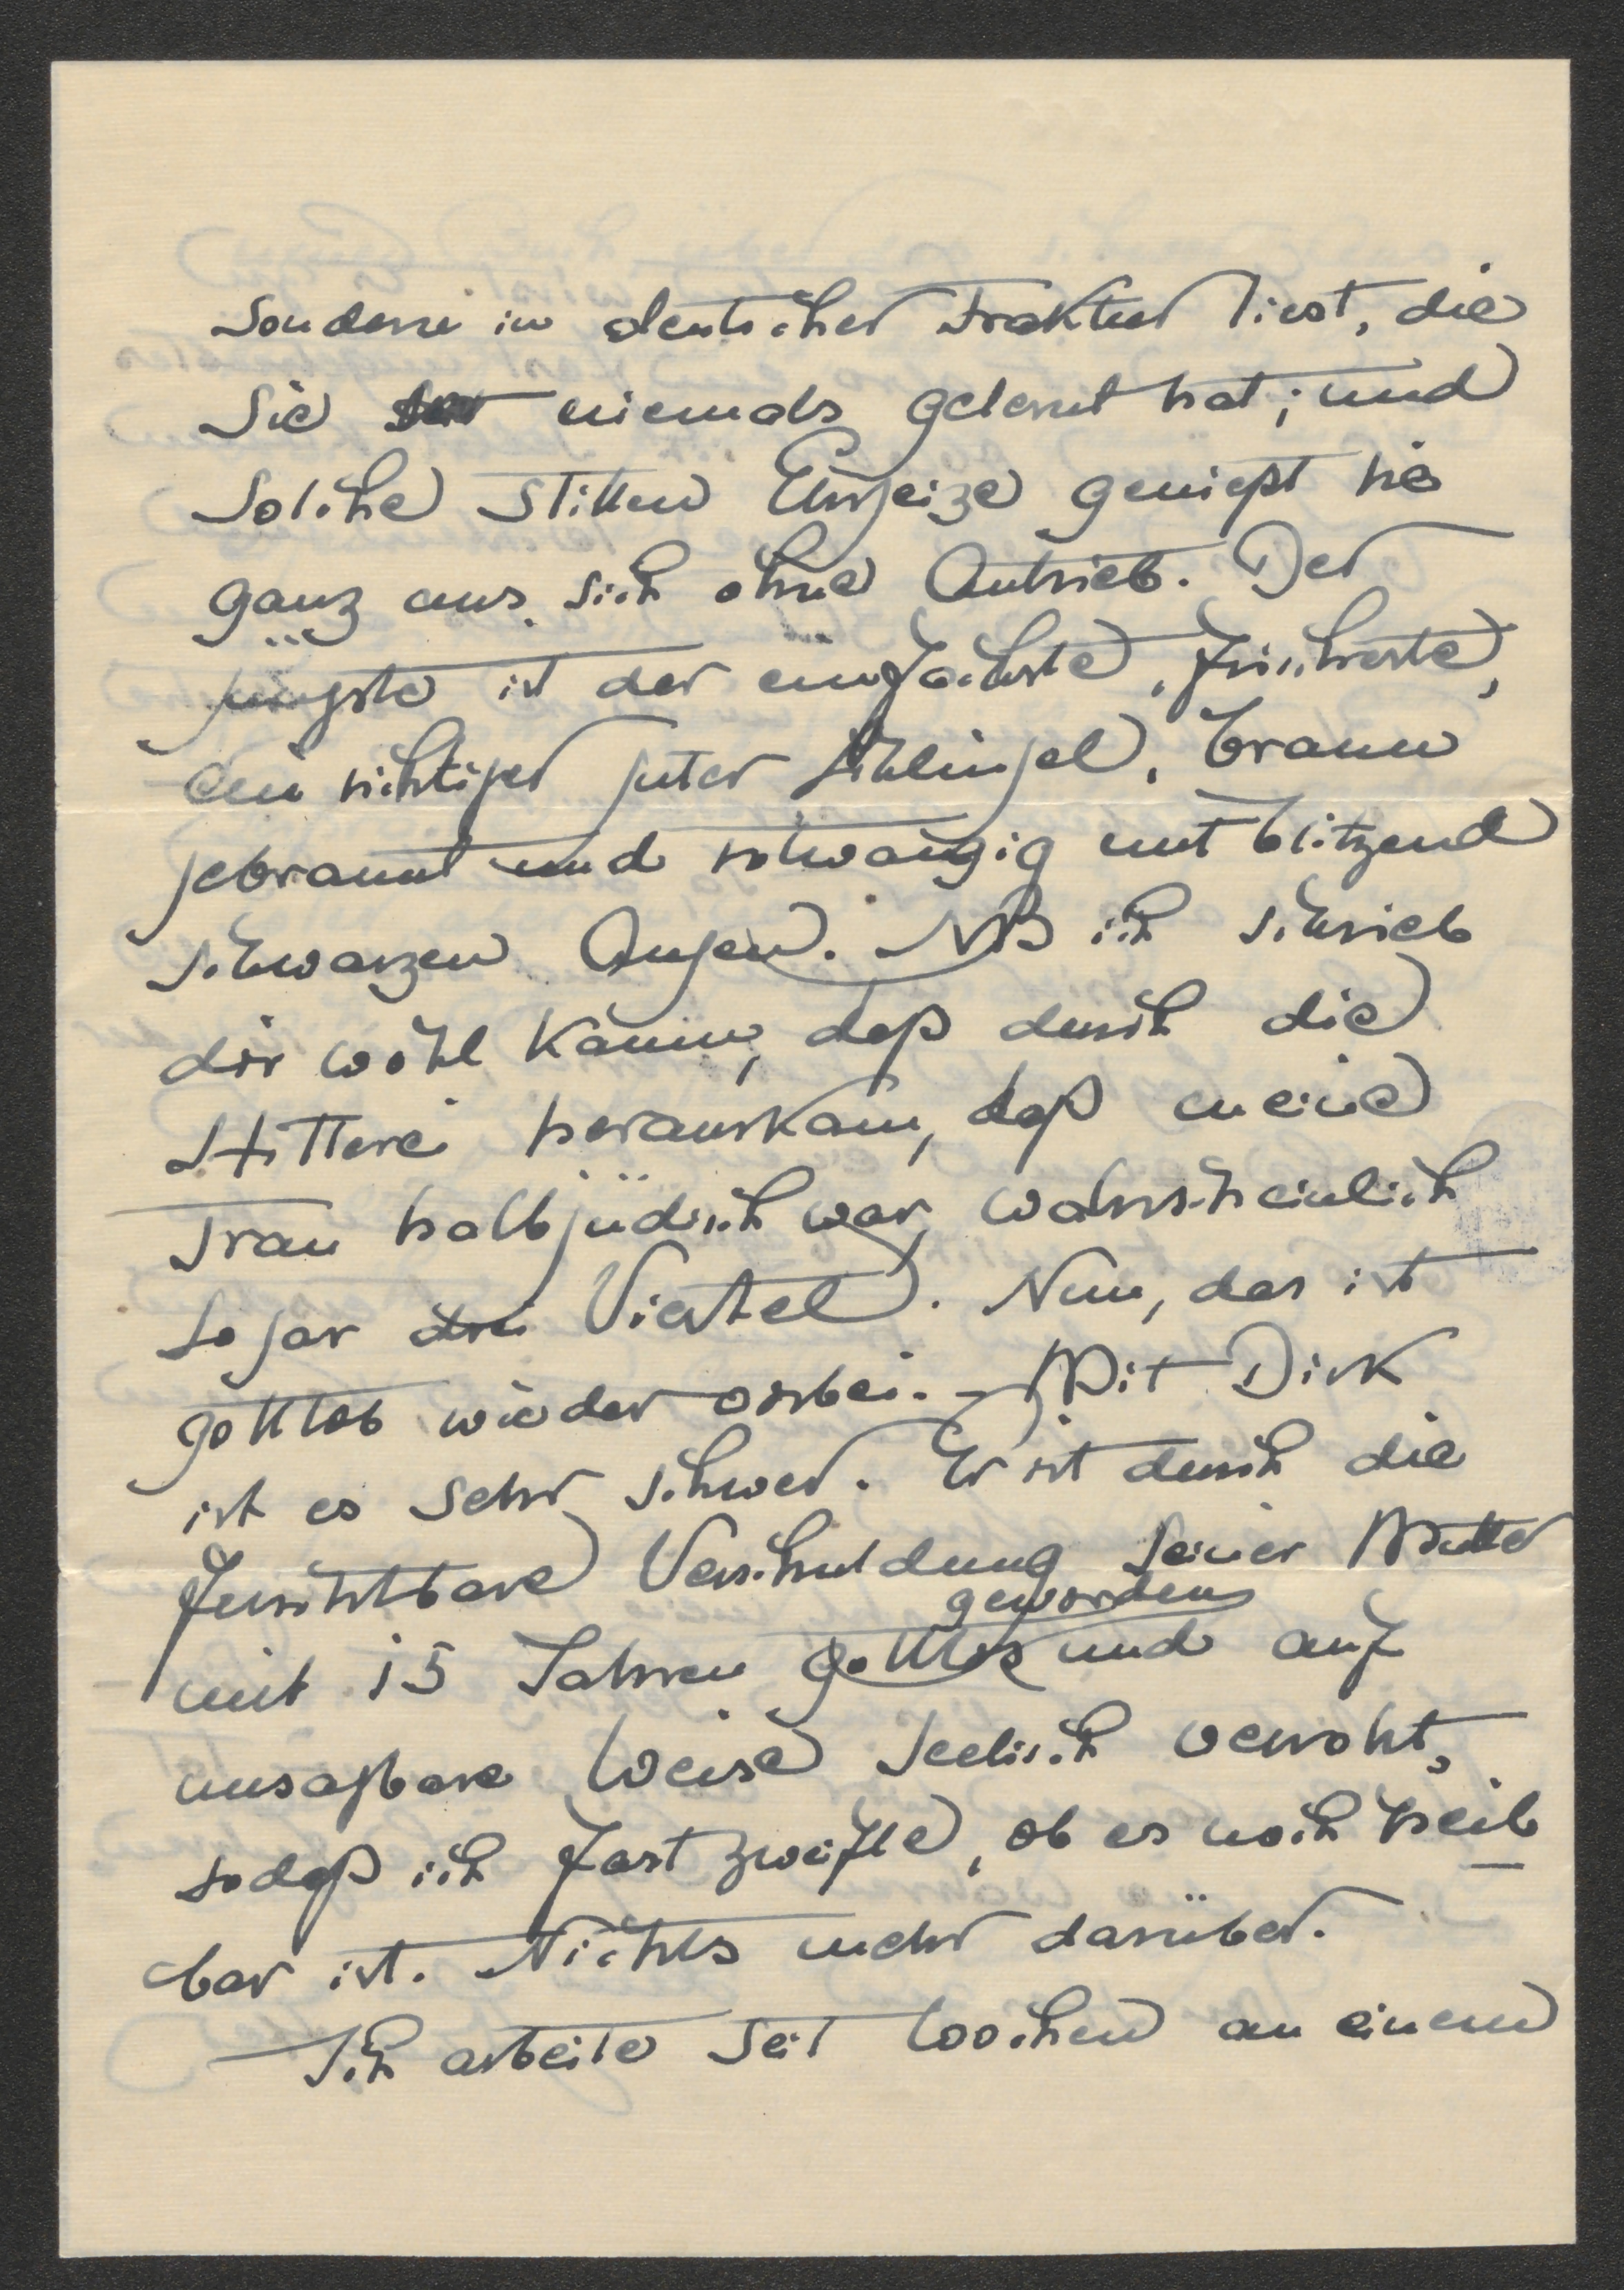 sondern in deutscher Fraktur liest, die
sie niemals gelernt hat; und
solche stillen Ehrgeize genießt sie
ganz aus sich ohne Antrieb. Der
jüngste ist der einfachste, frischeste,
ein richtiger guter Schlingel, braun
gebrannt und rotwangig mit blitzend
schwarzen Augen. NB ich schrieb
dir wohl kaum, daß durch die
Hitlerei herauskam, daß meine
Frau halbjüdisch war, wahrscheinlich
sogar drei Viertel. Nun, das ist
gottlob wieder vorbei. – Mit Dirk
ist es sehr schwer. Er ist durch die
furchtbare Verschuldung seiner Mutter
geworden
mit 15 Jahren gottlos und auf
unsagbare Weise seelisch verroht,
sodaß ich fast zweifle, ob es noch heil
bar ist. Nichts mehr darüber.
Ich arbeite seit Wochen an einem